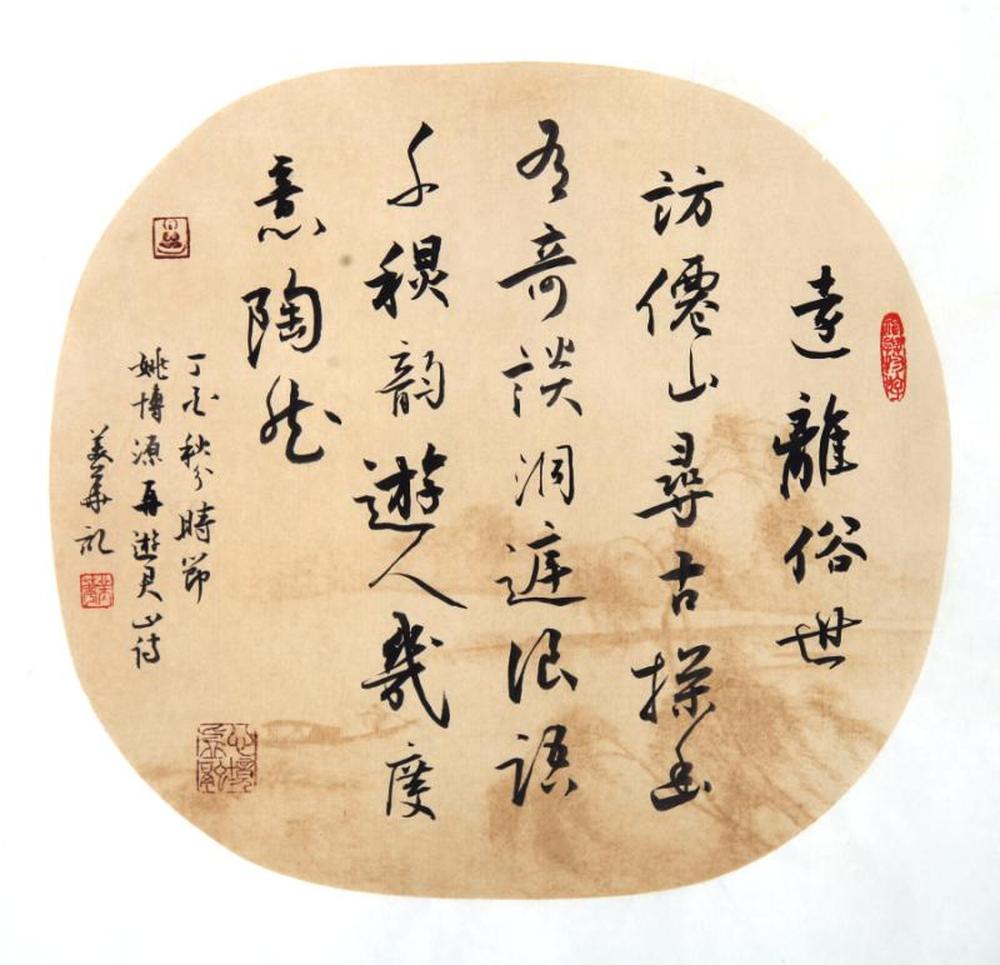 遠離俗世
訪僊山尋古探幽
有奇談洞庭浪語
千種韻遊人幾度
意陶然
丁酉秋分時節
姚博源再遊君山詩
美華記